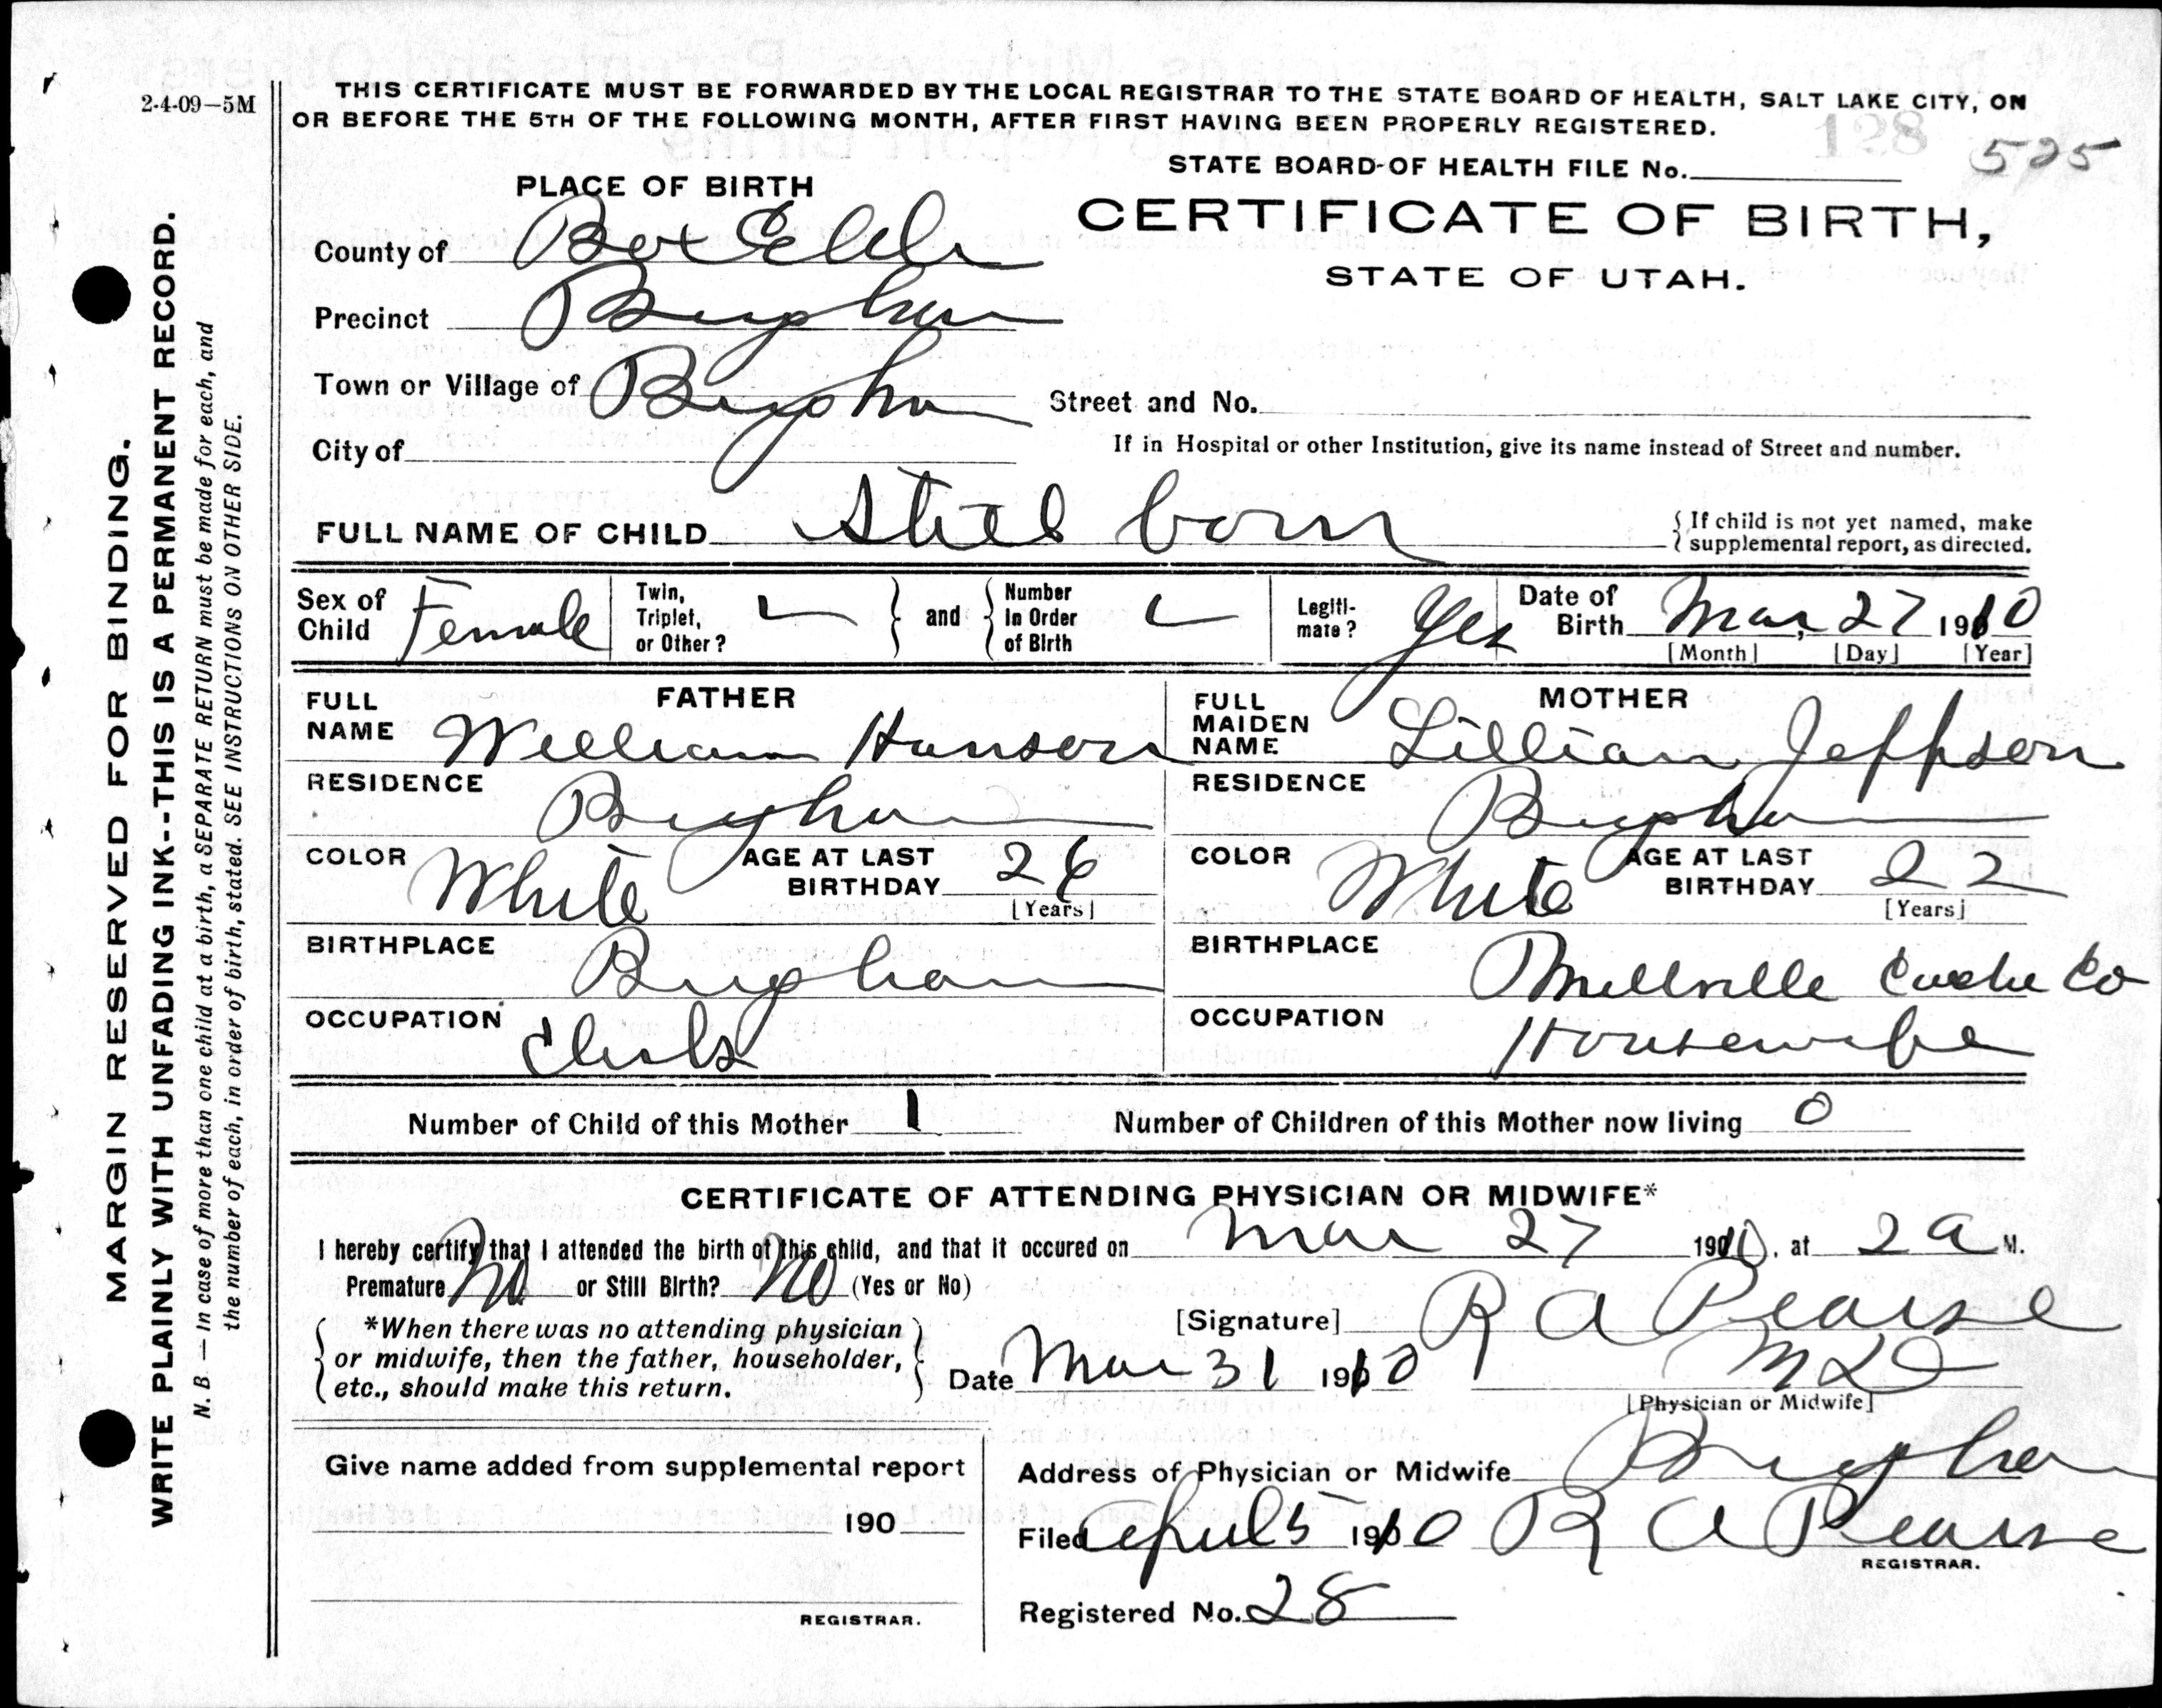 2-4-09—5M
THIS CERTIFICATE MUST BE FORWARDED BY THE LOCAL REGISTRAR TO THE STATE BOARD OF HEALTH, SALT LAKE CITY, ON
OR BEFORE THE 5TH OF THE FOLLOWING MONTH, AFTER FIRST HAVING BEEN PROPERLY REGISTERED.
128 525
STATE BOARD OF HEALTH FILE No.
PLACE OF BIRTH
CERTIFICATE OF BIRTH,
STATE OF UTAH.
County of Box Elder
Precinct Brigham
Town or Village of Brigham Street and No.
City of If in Hospital or other Institution, give its name instead of Street and number.
FULL NAME OF CHILD Still born { If child is not yet named, make supplemental report, as directed.
Sex of Child Female Twin, Triplet, or Other? } and { Number in Order of Birth Legiti-mate? Yes Date of Birth Mar, 27 1910
[Month] [Day] [Year]
FATHER MOTHER
FULL NAME William Hanson FULL MAIDEN NAME Lillian Jeppson
RESIDENCE Brigham RESIDENCE Brigham
COLOR White AGE AT LAST BIRTHDAY 26 [Years] COLOR White AGE AT LAST BIRTHDAY 22 [Years]
BIRTHPLACE Brigham BIRTHPLACE Millville Cache Co
OCCUPATION Clerk OCCUPATION Housewife
Number of Child of this Mother 1 Number of Children of this Mother now living 0
CERTIFICATE OF ATTENDING PHYSICIAN OR MIDWIFE*
I hereby certify that I attended the birth of this child, and that it occured on Mar 27 1910, at 2 a M.
Premature No or Still Birth? No (Yes or No)
[Signature] R A Pearse
*When there was no attending physician
or midwife, then the father, householder,
etc., should make this return.
Date Mar 31 1910 M D
[Physician or Midwife]
Give name added from supplemental report
Address of Physician or Midwife Brigham
190
Filed April 5 1910 R A Pearse
REGISTRAR.
Registered No. 28
REGISTRAR.
MARGIN RESERVED FOR BINDING.
WRITE PLAINLY WITH UNFADING INK--THIS IS A PERMANENT RECORD.
N. B — In case of more than one child at a birth, a SEPARATE RETURN must be made for each, and
the number of each, in order of birth, stated. SEE INSTRUCTIONS ON OTHER SIDE.